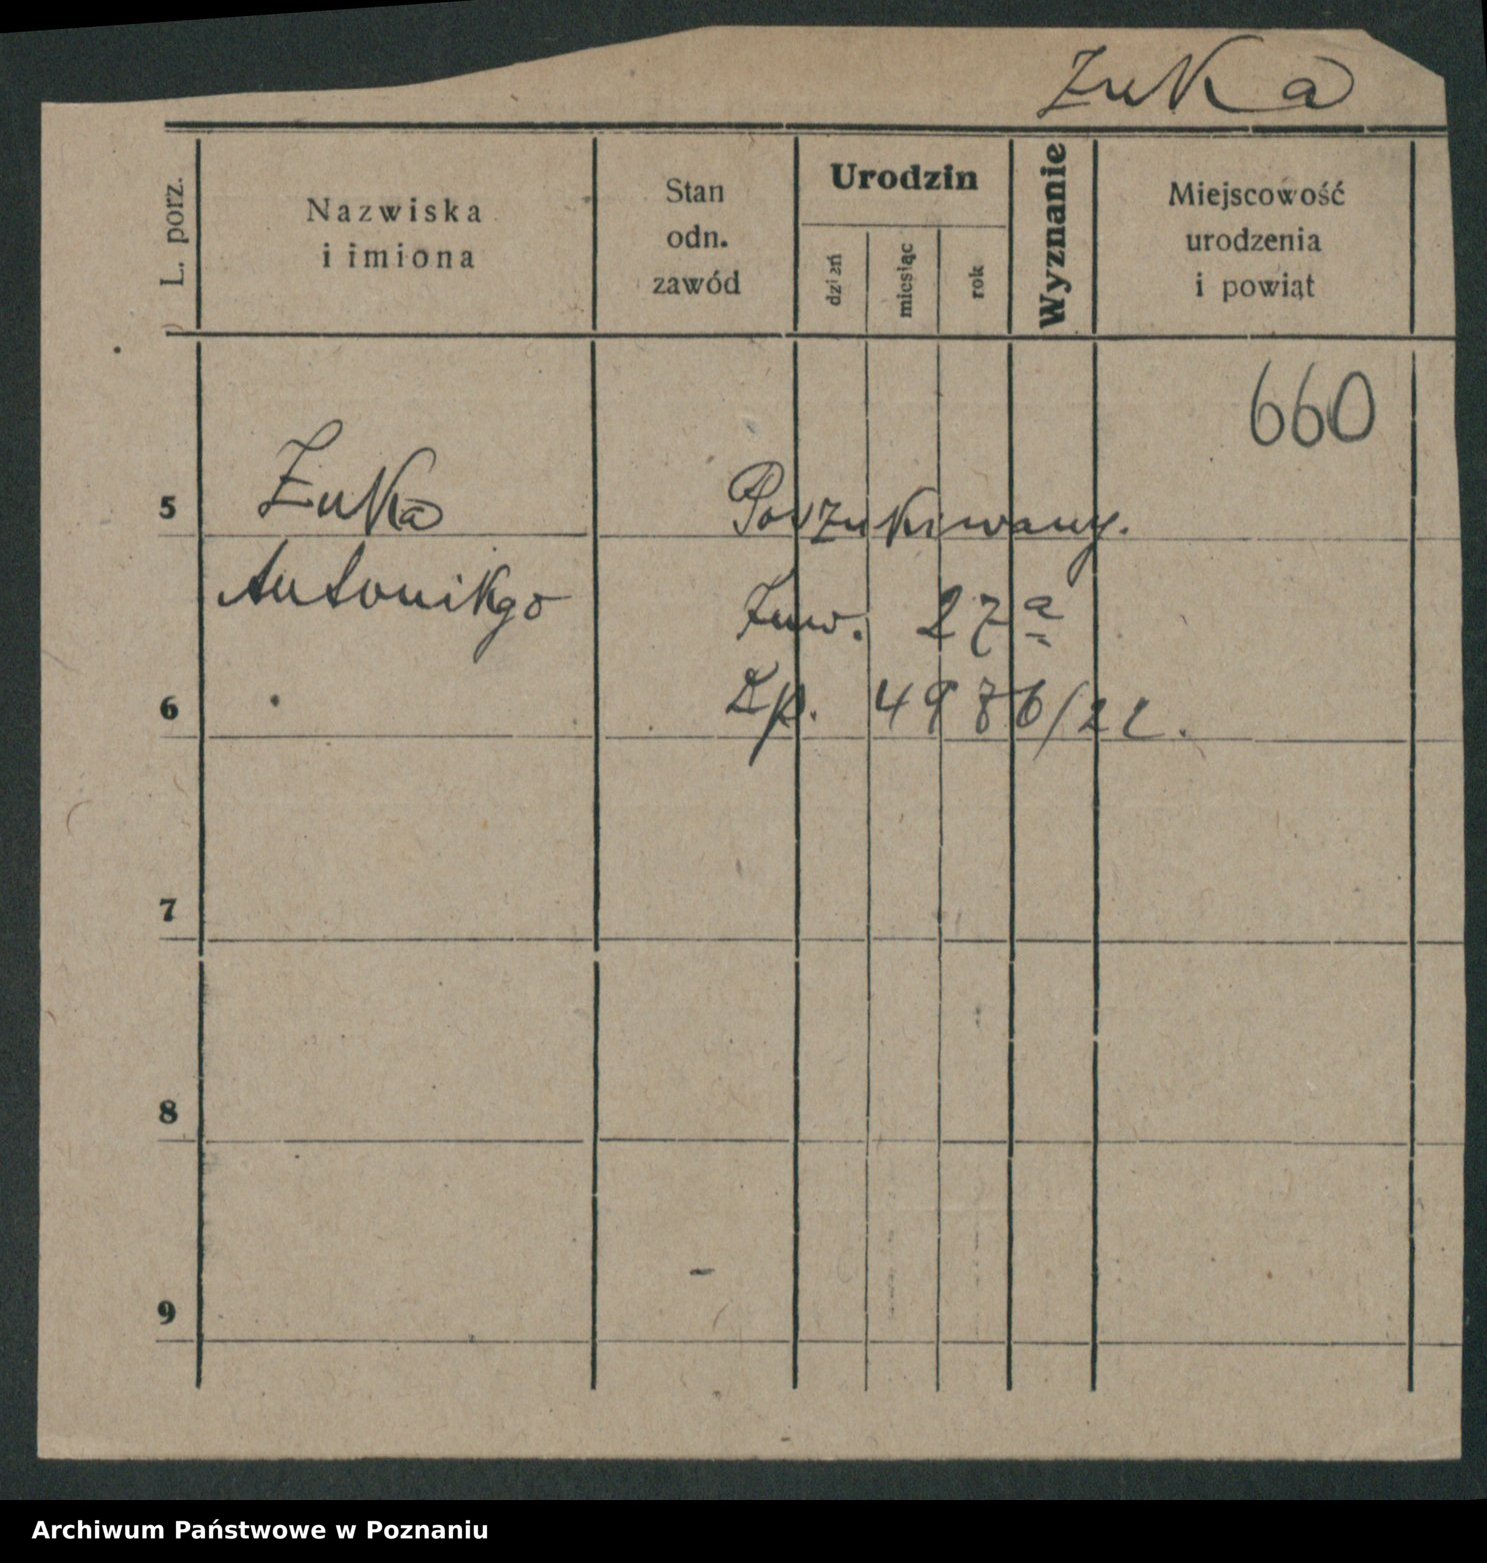 Zuka
L. porz.
Nazwiska
i imiona
Stan
odn.
zawód
Urodzin
dzień
miesiąc
rok
Wyznanie
Miejscowość
urodzenia
i powiąt
660
5
Zuka
Poszukiwany.
27 a
6
Lp. 4986/21.
7
8
9
Archiwum Państwowe w Poznaniu